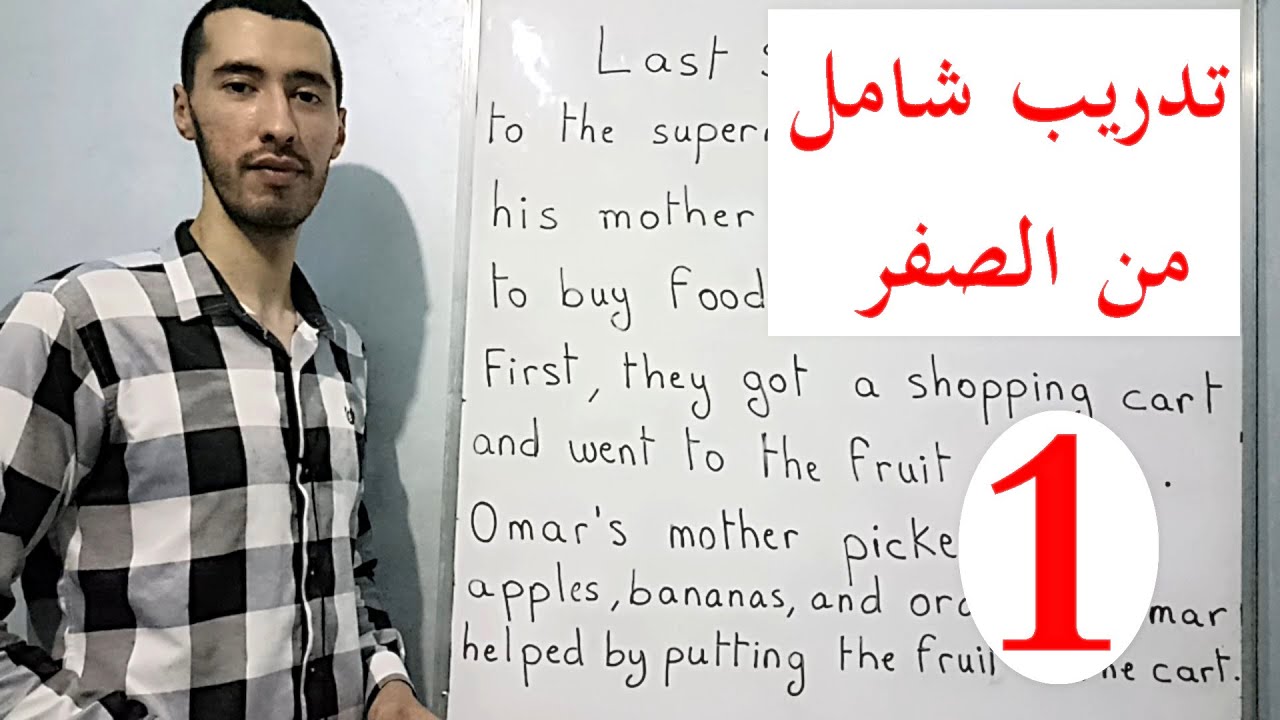 Last
to the
his mother
to buy food
First, they got a shopping cart
and went to the fruit .
Omar's mother
apples, bananas, and
helped by putting the cart.
تدريب شامل
من الصفر
1